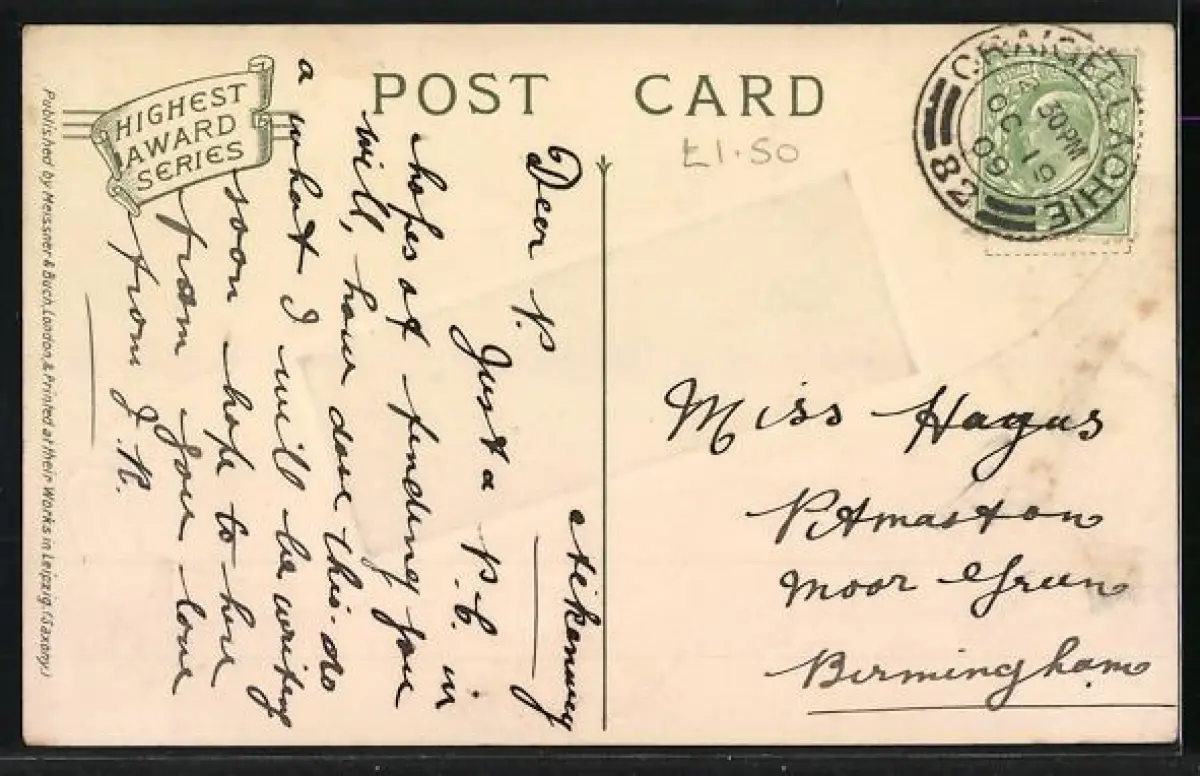 POST CARD
HIGHEST
AWARD
SERIES
Published by Meissner & Buch, London, & Printed at their Works in Leipzig. (Saxony.)
£1.50
CRAIGELLACHIE
30PM
OC 19
09
82
Dear P.
Just a P.C. in
hopes of finding you
will, how dose this do
a what I will be writing
soon hope to hear
from you love
from J. R.
Miss Hagus
Pitmaston
Moor Green
Birmingham